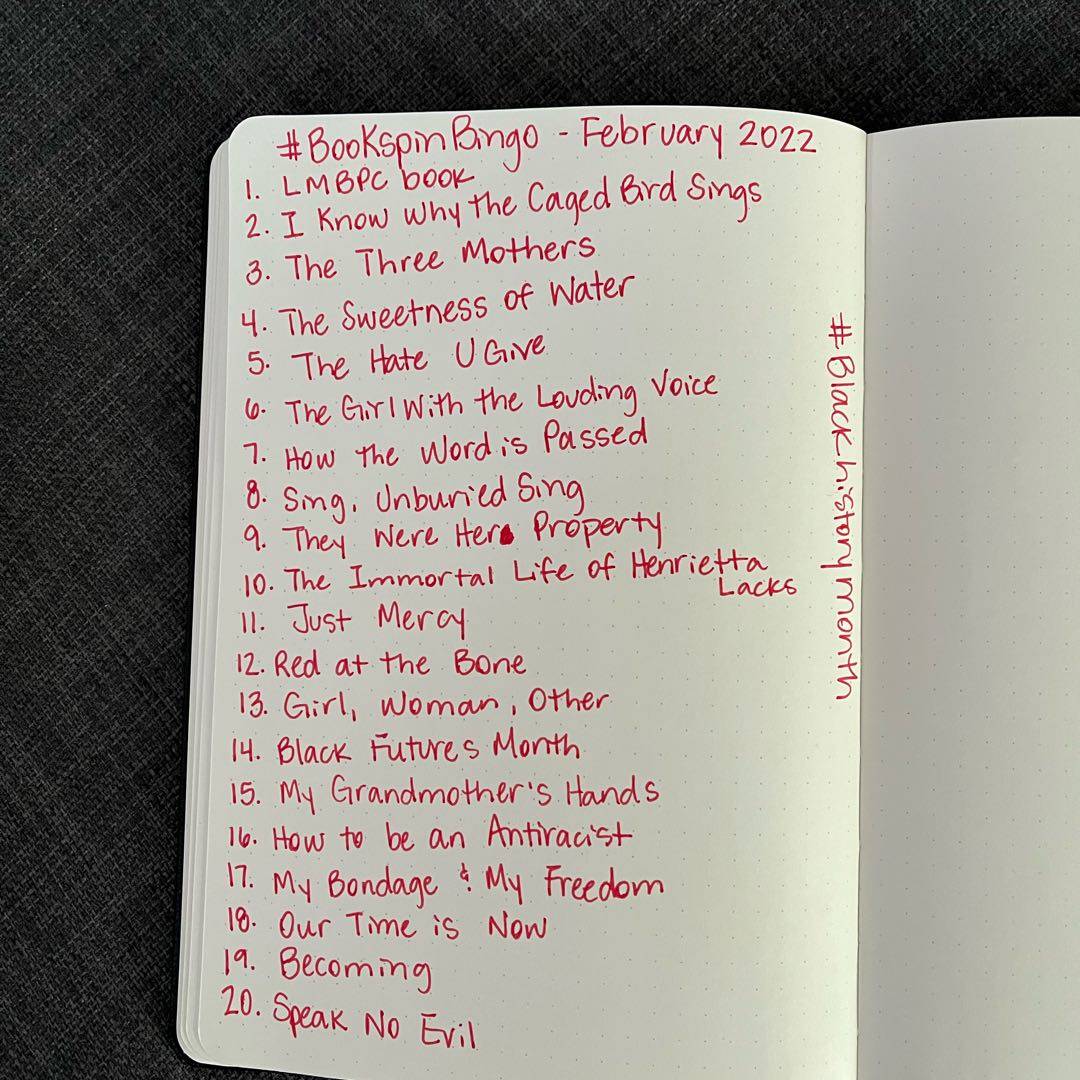 #BookspinBingo - February 2022
1. LMBPC book
2. I Know Why the Caged Bird Sings
3. The Three Mothers
4. The Sweetness of Water
5. The Hate U Give
6. The Girl With the Louding Voice
7. How the Word is Passed
8. Sing, Unburied Sing
9. They Were Her Property
10. The Immortal Life of Henrietta
Lacks
11. Just Mercy
12. Red at the Bone
13. Girl, Woman, Other
14. Black Futures Month
15. My Grandmother's Hands
16. How to be an Antiracist
17. My Bondage & My Freedom
18. Our Time is Now
19. Becoming
20. Speak No Evil
#Blackhistorymonth